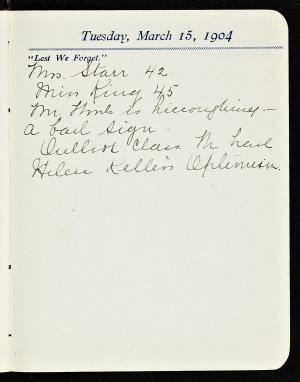 Tuesday, March 15, 1904
"Lest We Forget."
Mrs. Starr 42
Miss King 45
Mr is hiccoughing –
A bad sign.
Class. Mr read
Helen Keller's Optimism.